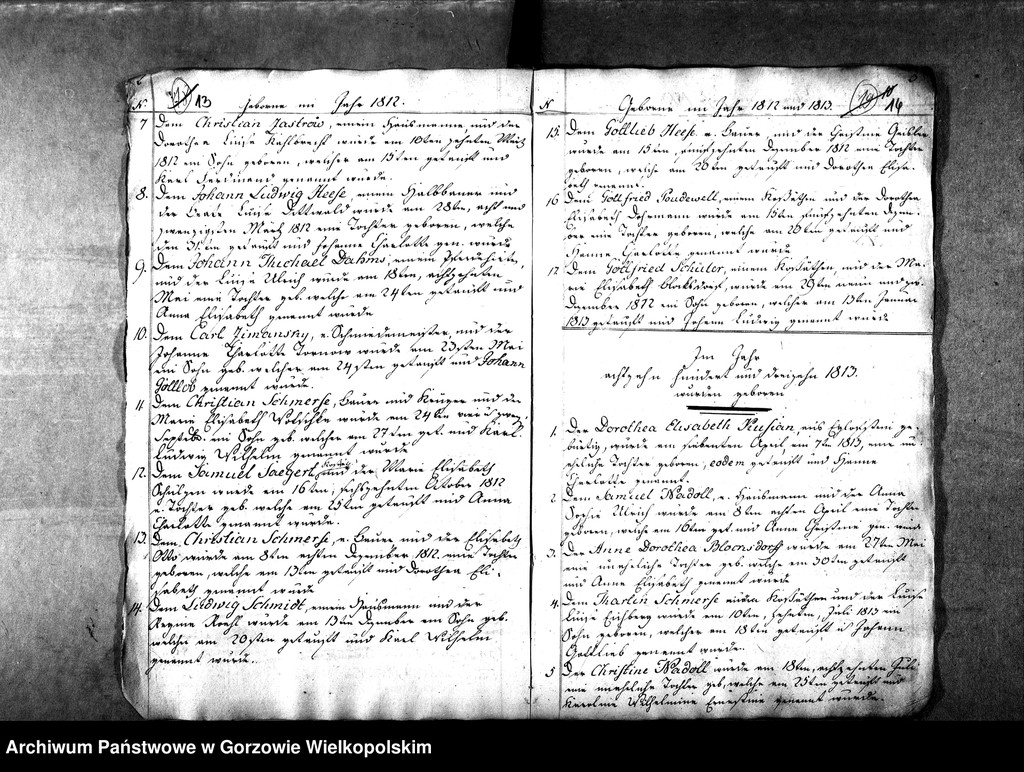 13
N. Geborne im Jahr 1812.
7 Dem Christian Jastrow, einem Hausmanne und der
Dorothea Luise wurde am 10ten zehnten März
1812 ein Sohn geboren, welcher am 15ten getauft und
Karl Ferdinand genannt wurde.
8. Dem Johann Ludwig Heese, einem Halbbauer und
der Luise Dittwald wurde am 28ten, acht und
zwanzigsten März 1812 eine Tochter geboren, welche
den 31ten getauft und Johanne Charlotte gen. wurde
9. Dem Johann Michael Dahms, einem
und der Luise Ulrich wurde am 18ten, achtzehnten
Mai eine Tochter geb. welche am 24ten getauft und
Anna Elisabeth genannt wurde
10. Dem Carl Zimansky, e. Schmiedemeister, und der
Johanne Charlotte Tornow wurde am 23sten Mai
ein Sohn geb. welcher am 24sten getauft und Johann
Gottlob genannt wurde.
11 Dem Christian Schmerse, Bauer und Krüger und der
Marie Elisabeth wurde am 24ten
Septbr. ein Sohn geb. welcher am 27ten get. und Karl
Ludwig Wilhelm genannt wurde
12. Dem Samuel Saegert, und der Marie Elisabeth
Schulzen wurde am 16ten, sechszehnten Oktober 1812
e. Tochter geb. welche am 25ten getauft und Anna
Charlotte genannt wurde.
13. Dem Christian Schmerse, e. Bauer und der Elisabeth
Otto, wurde am 8ten achten Dezember 1812. eine Tochter
geboren, welche am 13ten getauft und Dorothea Eli-
sabeth genannt wurde
14. Dem Ludwig Schmidt, einem Hausmann und der
Regine wurde am 13ten Dezember ein Sohn geb.
welcher am 20sten getauft und Karl Wilhelm
genannt wurde.
14
N Geborne im Jahr 1812 und 1813.
15. Dem Gottlieb Heese e. Bauer, und der Christine
wurde am 15ten, funfzehnten Dezember 1812 eine Tochter
geboren, welche am 20ten getauft und Dorothea Elisa-
beth genannt.
16 Dem Gottfried Poudewell, einem Kossäthen und der Dorothea
Elisabeth wurde am 15ten funfzehnten Dezem-
ber eine Tochter geboren, welche am 26ten getauft und
Hanne Charlotte genannt wurde
17 Dem Gottfried Schüler, einem Kossäthen, und der Ma-
rie Elisabeth wurde am 29ten neun und zw.
Dezember 1812 ein Sohn geboren, welcher am 13ten Januar
1813 getauft und Johann Ludwig genannt wurde
Im Jahr
achtzehn hundert und dreizehn 1813.
wurden geboren
1. Der Dorothea Elisabeth Kusian, aus ge-
bürtig, wurde am siebenten April, am 7ten 1813, eine un-
eheliche Tochter geboren, eodem getauft und Hanne
Charlotte genannt.
2 Dem Samuel Wadoll, e. Hausmann und der Anna
Sophie Ulrich wurde am 8ten achten April eine Tochter
geboren, welche am 16ten get. und Anna Christine gen. wurde
3. Der Anne Dorothea Bloonsdorf wurde am 27ten Mai
eine uneheliche Tochter geb. welche am 30ten getauft
und Anne Elisabeth genannt wurde
4. Dem Martin Schmerse Kossäthen und der Luise
wurde am 10ten, zehnten, Juli 1813 ein
Sohn geboren, welcher am 18ten getauft u. Johann
Gottlieb genannt wurde.
5 Der Christine Wadoll wurde am 18ten, achtzehnten Juli
eine uneheliche Tochter geb. welche am 25ten getauft und
Karoline Wilhelmine Ernestine genannt wurde.
Archiwum Państwowe w Gorzowie Wielkopolskim